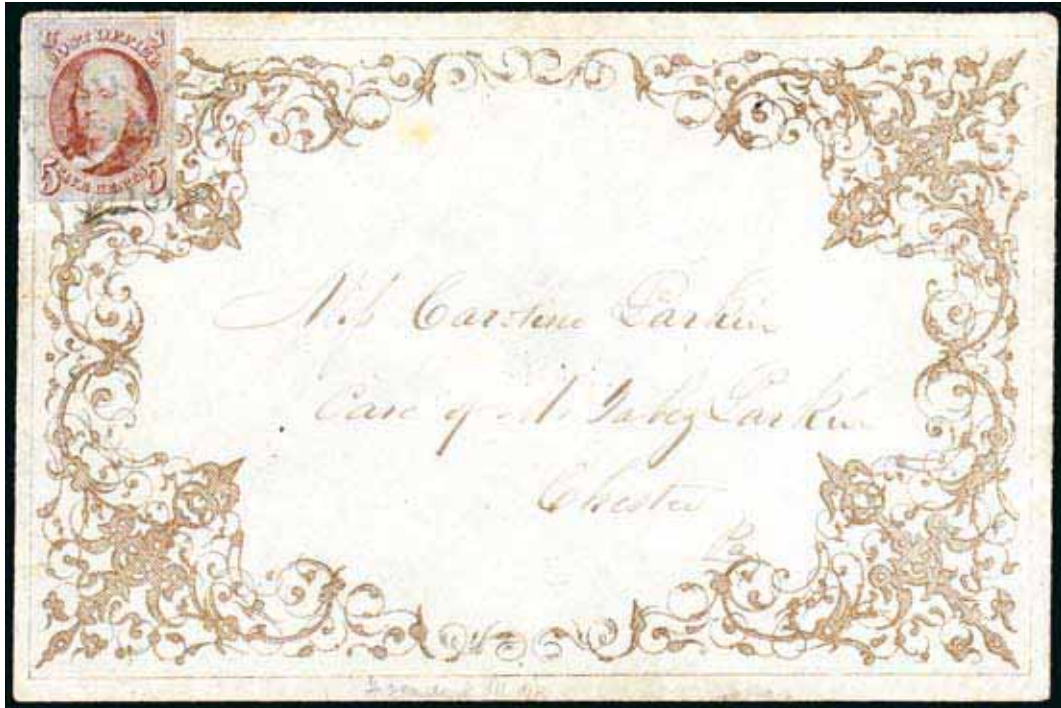 POST OFFICE
5 FIVE CENTS 5
Miss Caroline Larkin
Care of Jabez Larkin
Chester
Pa